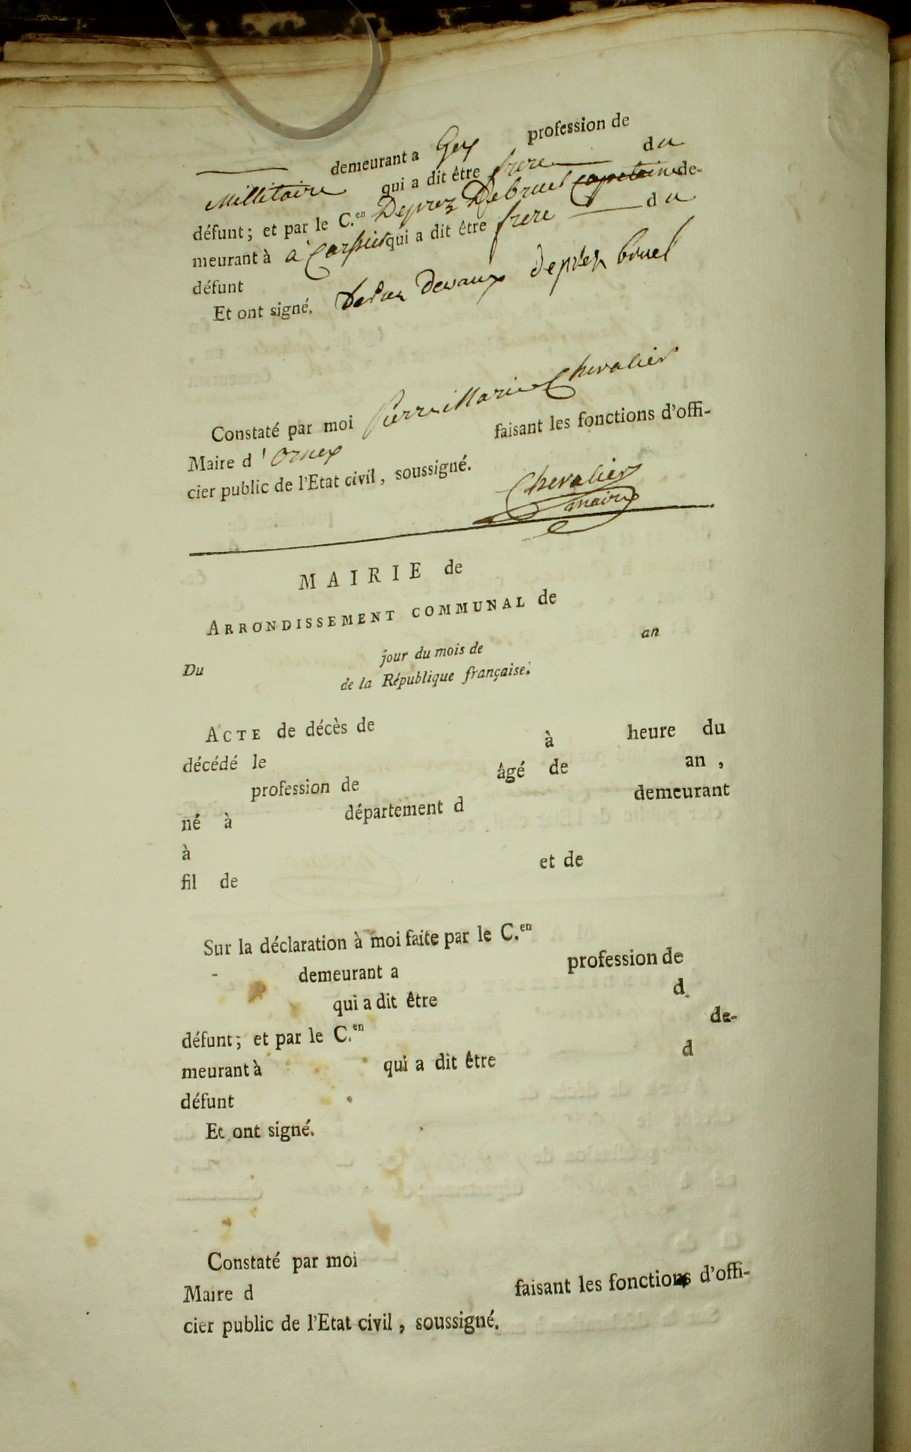 demeurant a Gex profession de
Millitaire qui a dit être frere du
défunt; et par le C.en Deprez Debruel capetaine de-
meurant à a qui a dit être frere du
défunt
Et ont signé. Devaux deprez bruel
Constaté par moi Pierre Marie Chevalier
Maire d'Ornex faisant les fonctions d'offi-
cier public de l'Etat civil, soussigné.
Chevalier
maire
MAIRIE de
ARRONDISSEMENT COMMUNAL de
Du jour du mois de an
de la République française.
ACTE de décès de
décédé le à heure du
profession de âgé de an,
né à département d demeurant
à
fil de et de
Sur la déclaration à moi faite par le C.en
- demeurant a profession de
qui a dit être d
défunt; et par le C.en de-
meurant à qui a dit être d
défunt
Et ont signé.
Constaté par moi
Maire d faisant les fonctions d'offi-
cier public de l'Etat civil, soussigné.